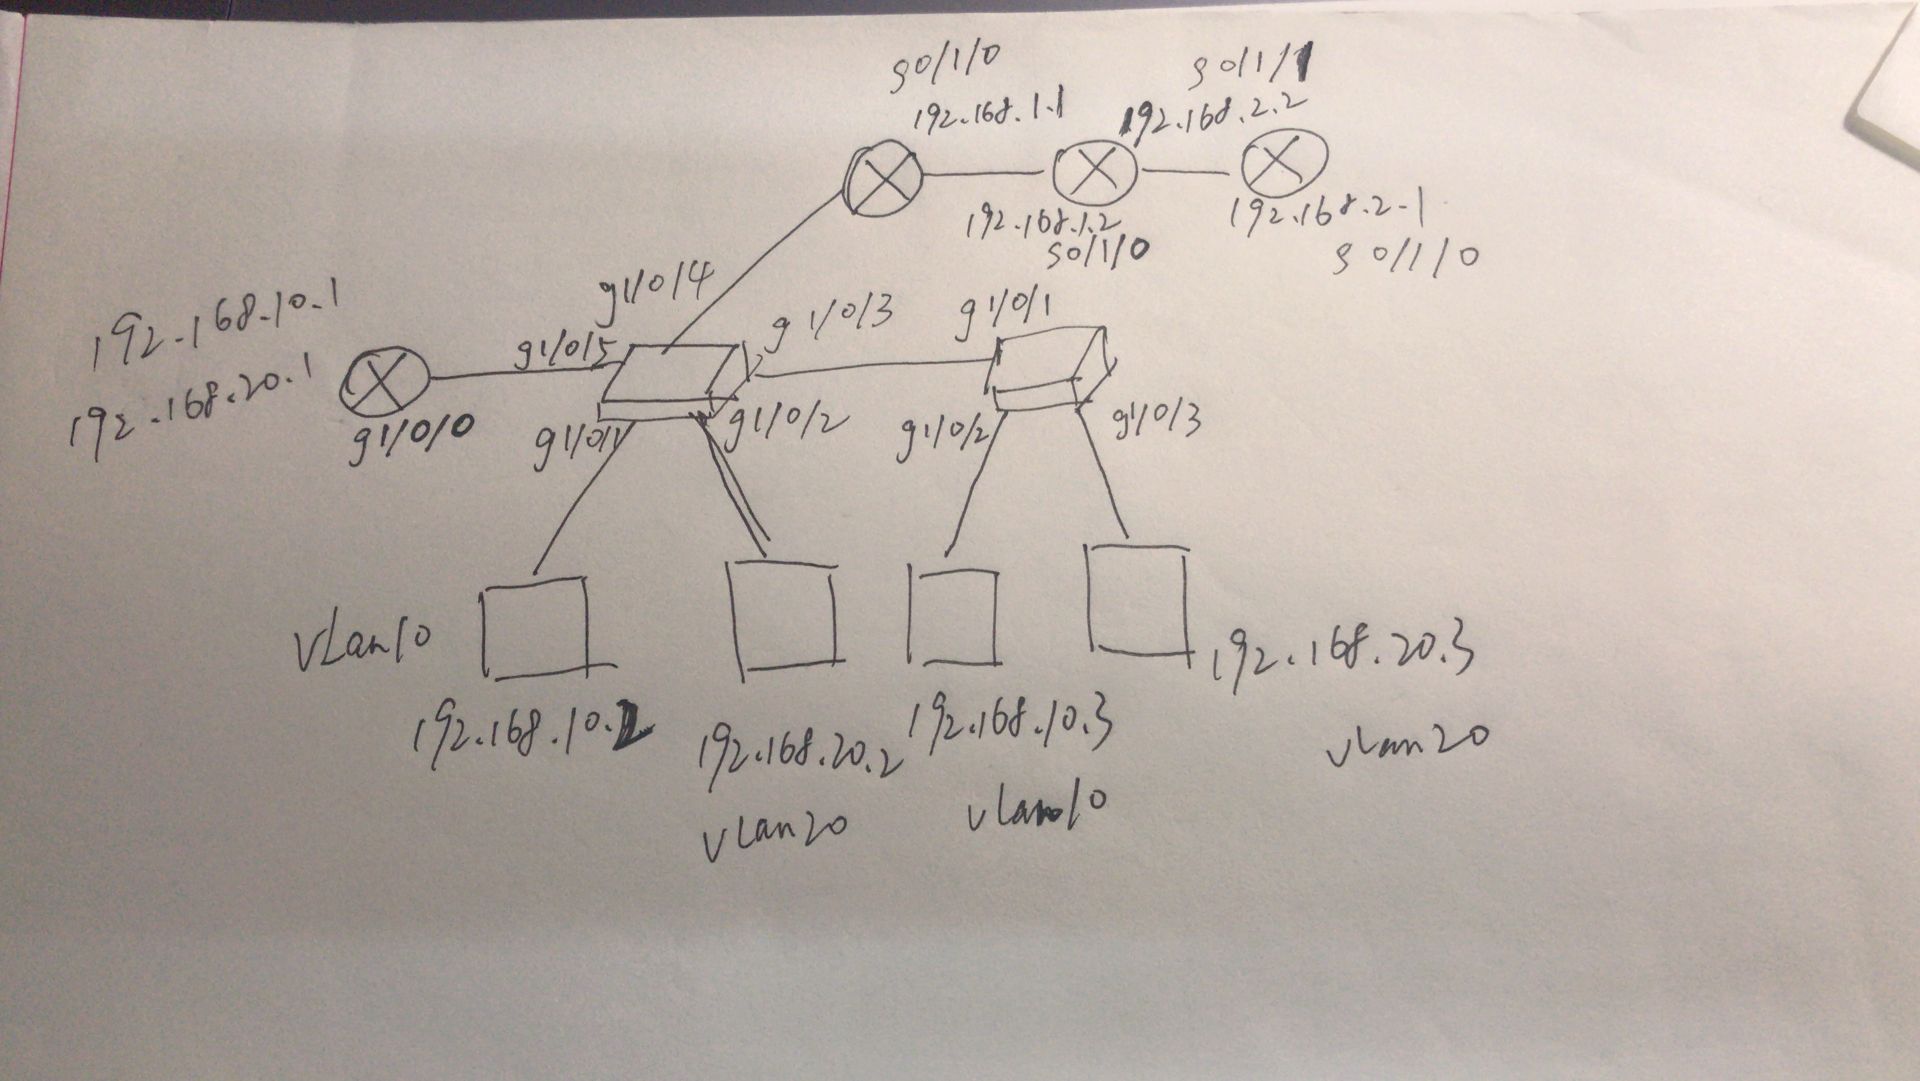 s0/1/0
s0/1/1
192.168.1.1
192.168.2.2
192.168.1.2
s0/1/0
192.168.2.1
s0/1/0
g1/0/4
192.168.10.1
192.168.20.1
g1/0/5
g1/0/3
g1/0/1
g1/0/0
g1/0/1
g1/0/2
g1/0/2
g1/0/3
vlan10
192.168.10.2
192.168.20.2
vlan20
192.168.10.3
vlan10
192.168.20.3
vlan20